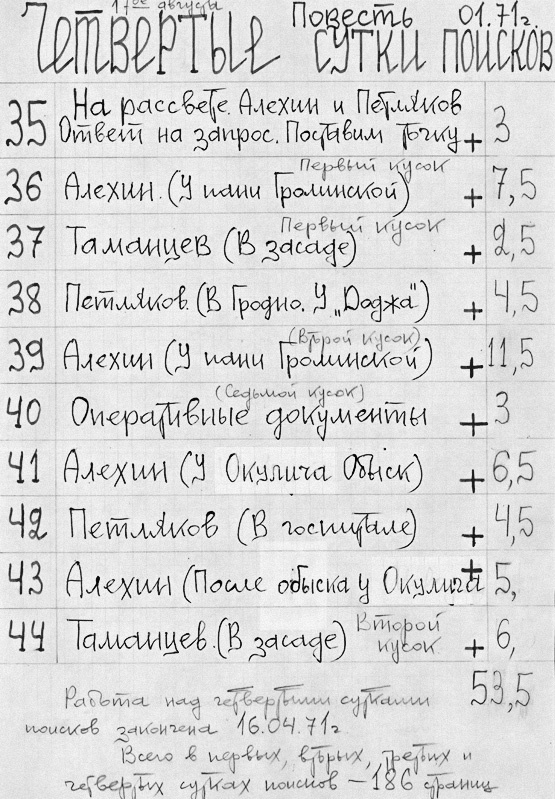 17ое августа
Повесть 01.71г.
Четвертые сутки поисков
35 На рассвете. Алехин и Петляков
Ответ на запрос. Поставим точку + 3
Первый кусок
36 Алехин. (У пани Гролинской) + 7,5
Первый кусок
37 Таманцев (В засаде) + 2,5
38 Петляков. (В Гродно. У „Доджа“) + 4,5
(Второй кусок)
39 Алехин (У пани Гролинской) + 11,5
(Седьмой кусок)
40 Оперативные документы + 3
41 Алехин (У Окулича Обыск) + 6,5
42 Петляков (В госпитале) + 4,5
43 Алехин (После обыска у Окулича + 5,
44 Таманцев. (В засаде) Второй
кусок + 6,
53,5
Работа над четвертыми сутками
поисков закончена 16.04.71г
Всего в первых, вторых, третьих и
четвертых сутках поисков — 186 страниц